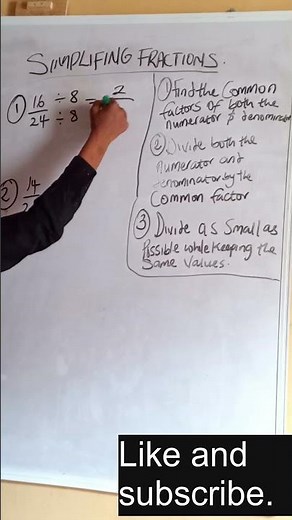 SIMPLIFING FRACTIONS.
① 16 ÷ 8 = 2
24 ÷ 8
② 14
2
① Find the Common
factors of both the
numerator & denominator
② Divide both the
Numerator and
denominator by the
Common factor
③ Divide as small as
Possible while keeping the
Same values.
Like and
subscribe.